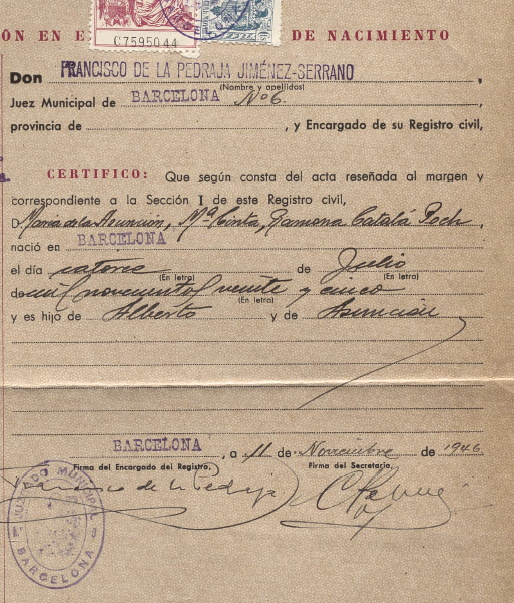 C7595044
ÓN EN E DE NACIMIENTO
Don FRANCISCO DE LA PEDRAJA JIMÉNEZ-SERRANO ,
(Nombre y apellidos)
Juez Municipal de BARCELONA Nº 6. ,
provincia de , y Encargado de su Registro civil,
CERTIFICO: Que según consta del acta reseñada al margen y
correspondiente a la Sección I de este Registro civil,
D María de la Asunción, Mª Cinta, Ramona Catalá Poch ,
nació en BARCELONA
el día catorce de Julio
(En letra) (En letra)
de mil novecientos veinte y cinco
(En letra)
y es hijo de Alberto y de Asunción
BARCELONA , a 11 de Noviembre de 1946
Firma del Encargado del Registro, Firma del Secretario,
Francisco de la Pedraja
JUZGADO MUNICIPAL
BARCELONA